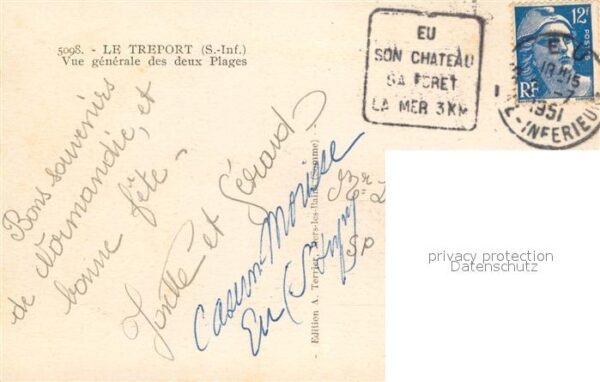 5098. - LE TREPORT (S.-Inf.)
Vue générale des deux Plages
EU
SON CHATEAU
SA FORET
LA MER 3 KM
12F
POSTES
RF
EU
1951
E-INFERIEURE
Bons souvenirs
de Normandie, et
bonne fête
et Gérard
Eu
Edition A. Terrier, Mers-les-Bains (Somme)
SP
privacy protection
Datenschutz